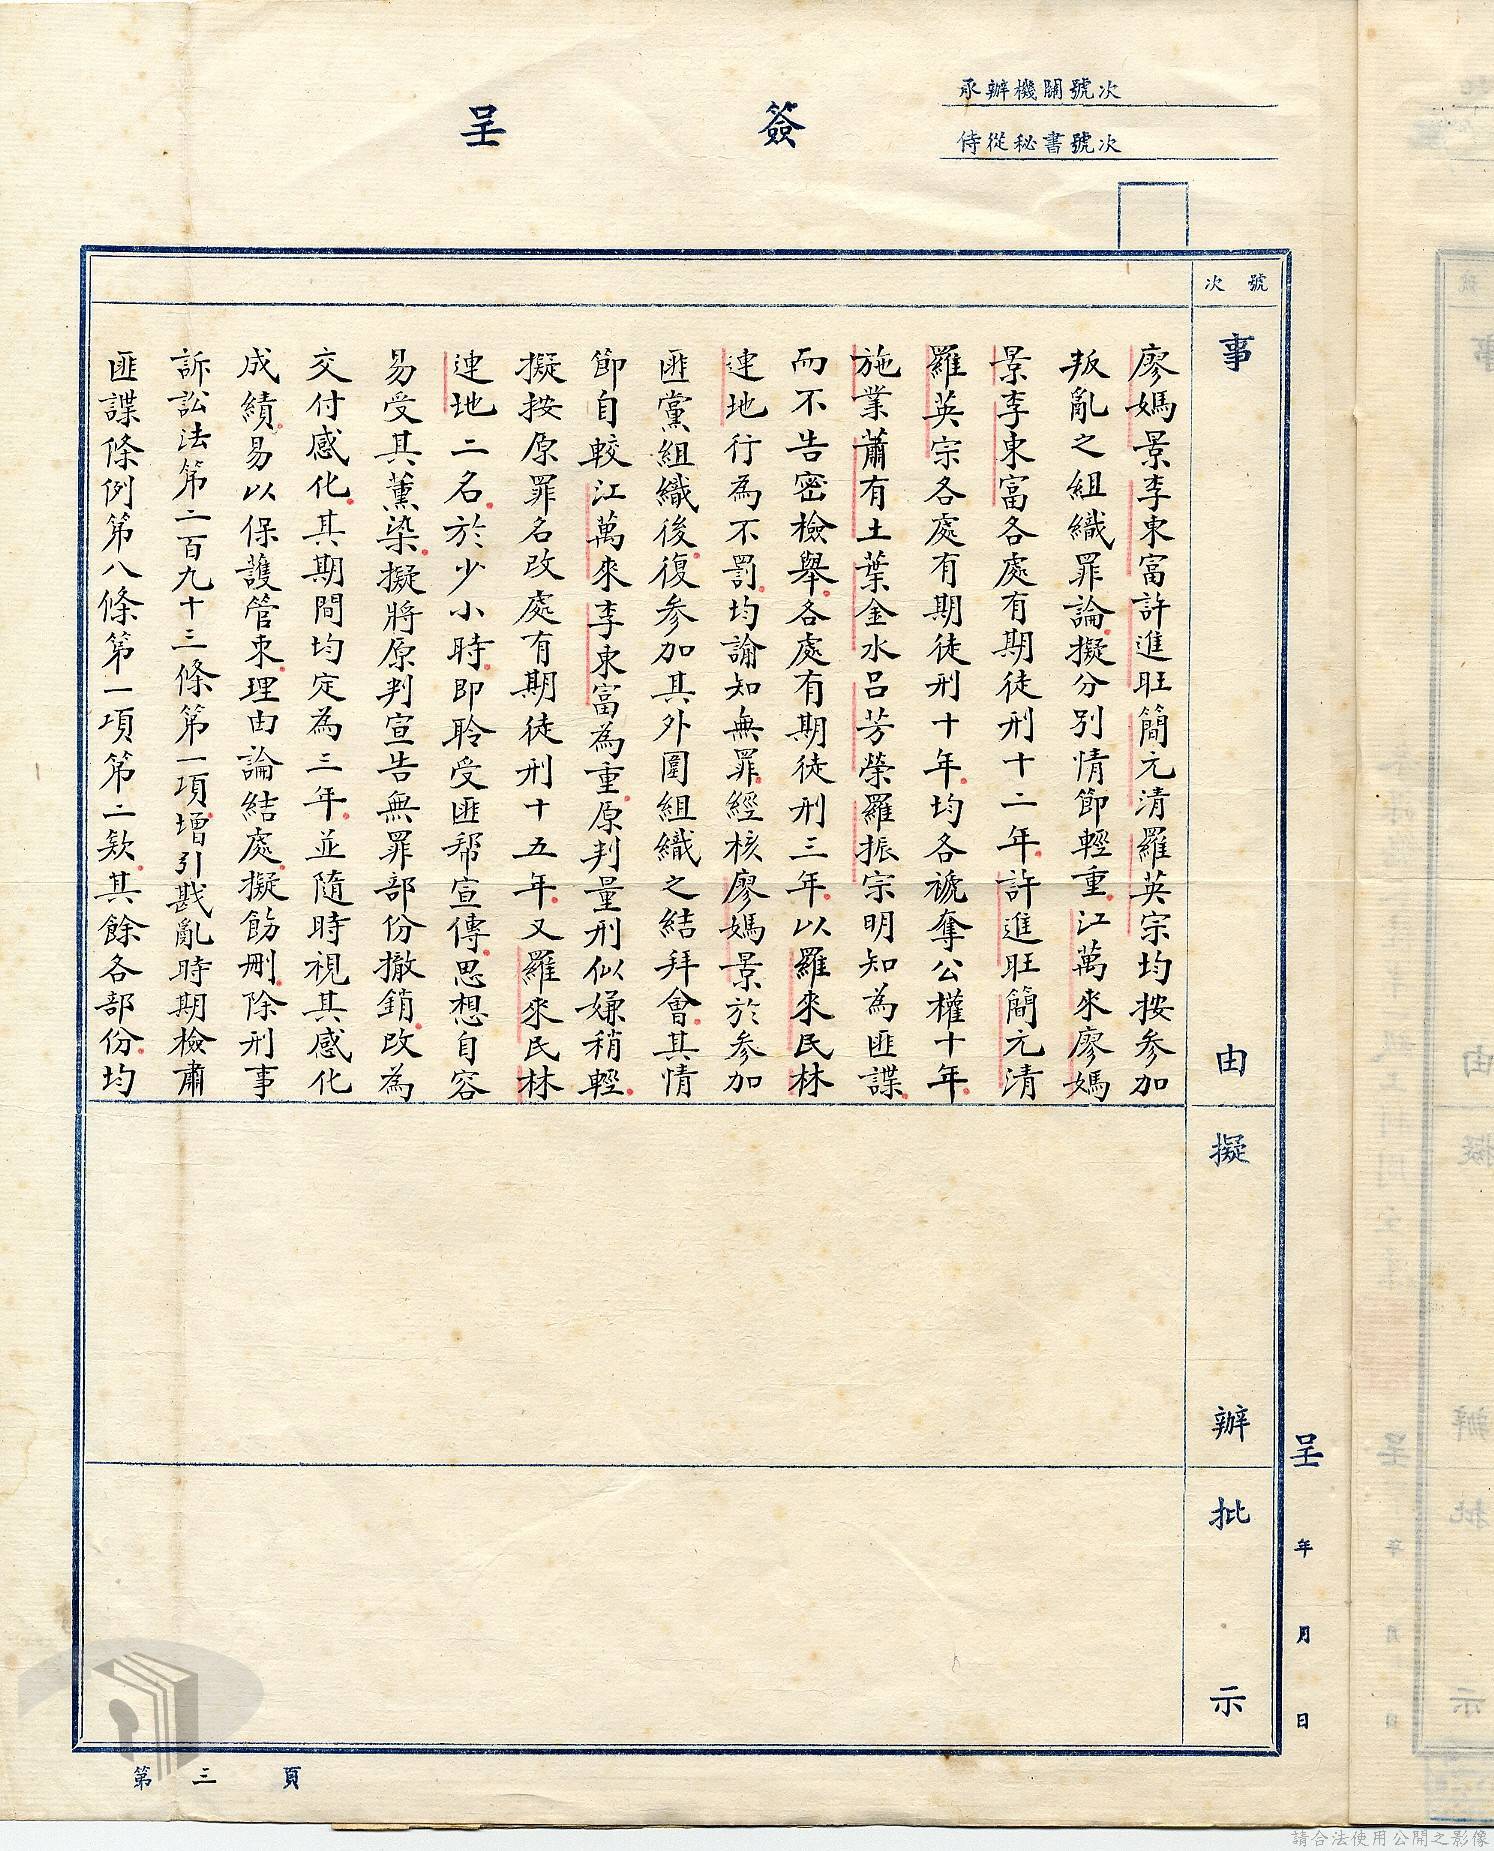 簽呈
承辦機關號次
侍從秘書號次
號次
事由
擬辦
批示
廖媽景李東富許進旺簡元清羅英宗均按參加
叛亂之組織罪論擬分別情節輕重江萬來廖媽
景李東富各處有期徒刑十二年許進旺簡元清
羅英宗各處有期徒刑十年均各褫奪公權十年
施業蕭有土葉金水呂芳榮羅振宗明知為匪諜
而不告密檢舉各處有期徒刑三年以羅來民林
連地行為不罰均諭知無罪經核廖媽景於參加
匪黨組織後復參加其外圍組織之結拜會其情
節自較江萬來李東富為重原判量刑似嫌稍輕
擬按原罪名改處有期徒刑十五年又羅來民林
連地二名於少小時即聆受匪幫宣傳思想自容
易受其薰染擬將原判宣告無罪部份撤銷改為
交付感化其期間均定為三年並隨時視其感化
成績易以保護管束理由論結處擬飭刪除刑事
訴訟法第二百九十三條第一項增引戡亂時期檢肅
匪諜條例第八條第一項第二款其餘各部份均
呈 年 月 日
第三頁
請合法使用公開之影像